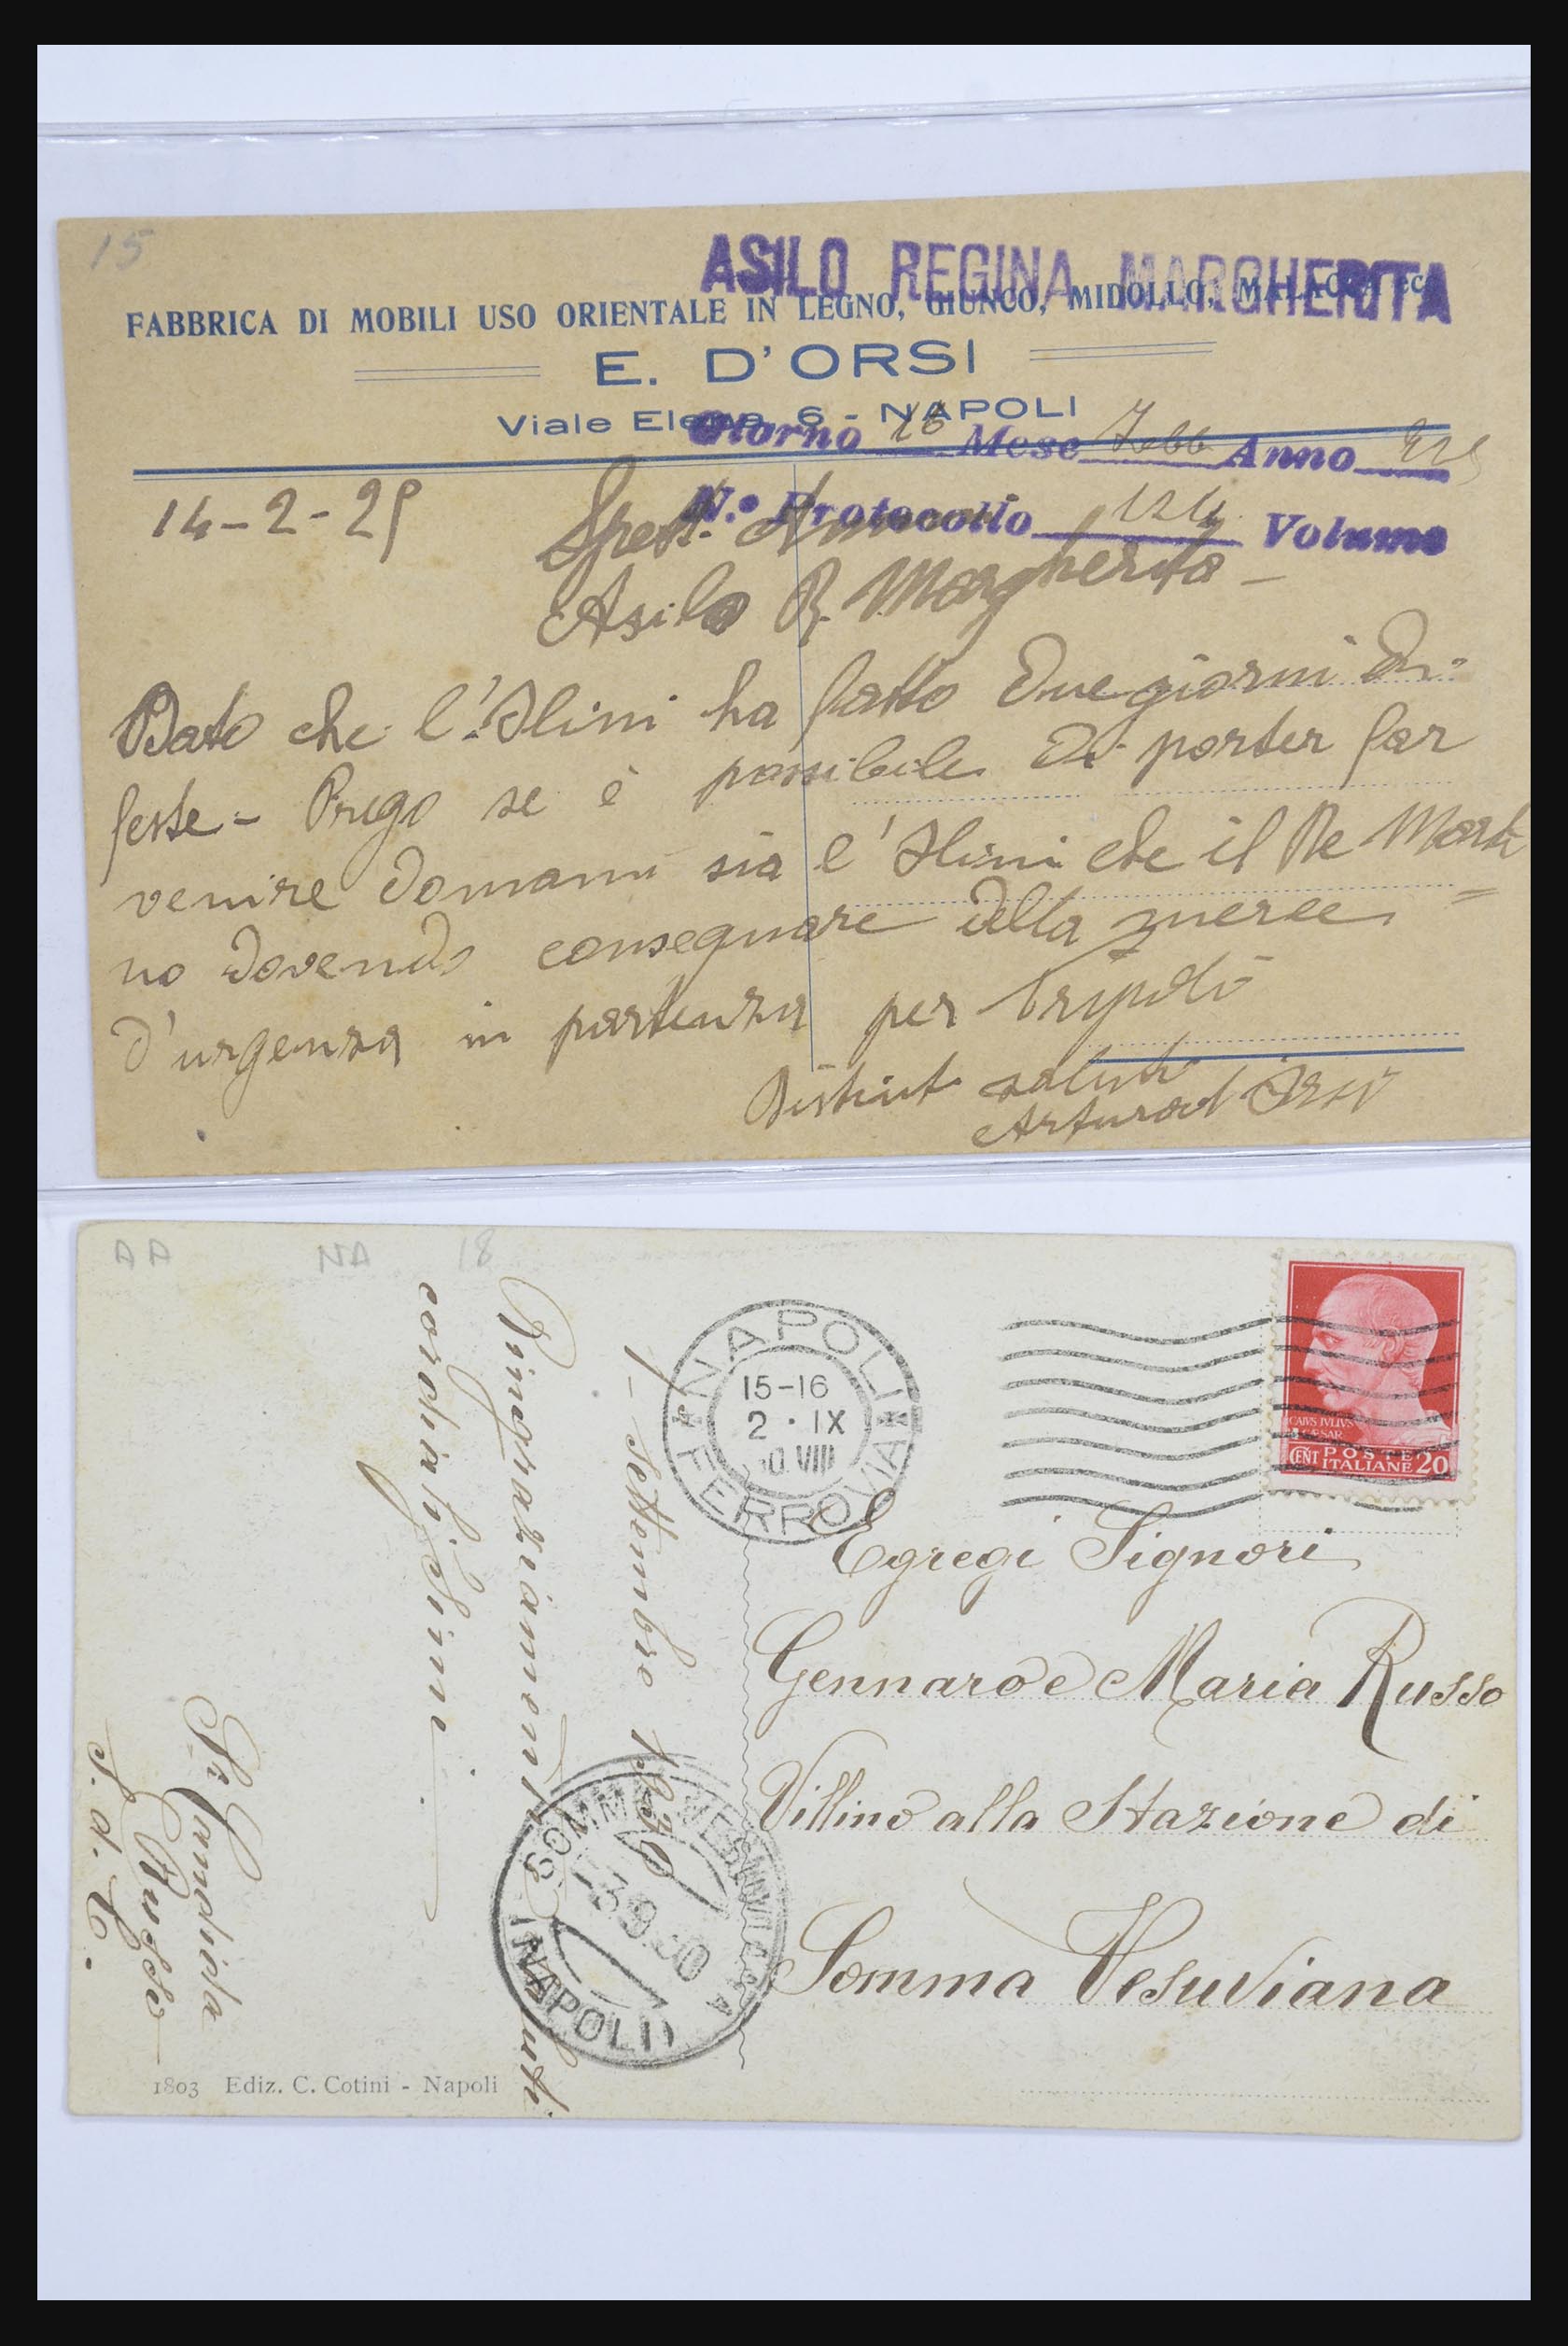 15
ASILO REGINA MARGHERITA
FABBRICA DI MOBILI USO ORIENTALE IN LEGNO, GIUNCO, MIDOLLO, MALACCA ecc.
E. D'ORSI
Viale Elena, 6 - NAPOLI
Giorno 16 Mese Febb Anno 925
N.º Protocollo 124 Volume
14-2-25
Spett.
Asilo R. Margherita -
Dato che l' Ilini ha fatto due giorni di
feste - Prego se è possibile di porter far
venire domani sia l' Ilini che il De Marti
no dovendo consegnare della merce
d'urgenza in partenza per Tripoli
Distinti saluti
Arturo d'Orsi
AA NA 18
NAPOLI
15-16
2 · IX
30 VIII
FERROVIA
CAIVS IVLIVS
CAESAR
CENT POSTE
ITALIANE 20
Egregi Signori
Gennaro e Maria Russo
Villino alla Stazione di
Somma Vesuviana
1 - Settembre 1930
Ringraziamenti saluti
cordialissimi
Russo
SOMMA VESUVIANA
3.9.30
(NAPOLI)
1803 Ediz. C. Cotini - Napoli